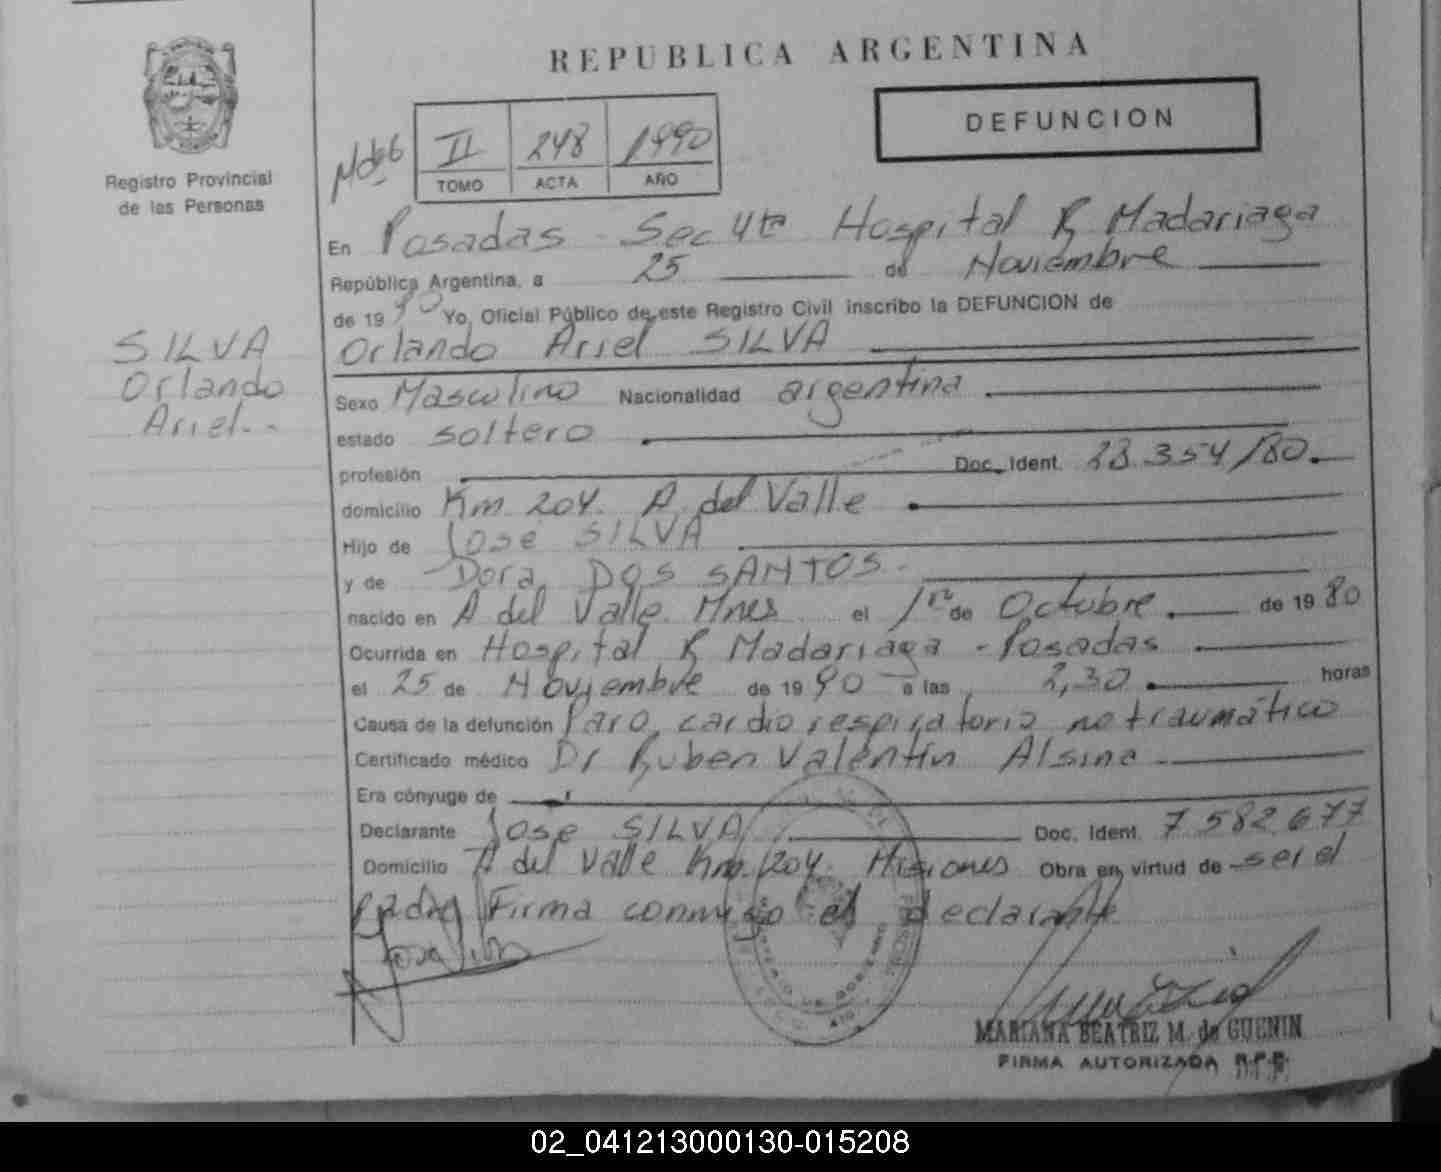 REPUBLICA ARGENTINA
DEFUNCION
II 248 1990
TOMO ACTA AÑO
Registro Provincial
de las Personas
SILVA
Orlando
Ariel.-
En Posadas Sec 4ta Hospital R Madariaga
República Argentina, a 25 de Noviembre
de 1990 Yo, Oficial Público de este Registro Civil inscribo la DEFUNCION de
Orlando Ariel SILVA
Sexo Masculino Nacionalidad argentina
estado soltero
profesión Doc. Ident. 28.354/80.
domicilio Km 204. A. del Valle
Hijo de José SILVA
y de Dora DOS SANTOS.
nacido en A del Valle. Mnes el 1ro de Octubre de 1980
Ocurrida en Hospital R Madariaga - Posadas
el 25 de Noviembre de 1990 a las 2,30 horas
Causa de la defunción Paro cardio respiratorio no traumático
Certificado médico Dr Ruben Valentín Alsina
Era cónyuge de
Declarante José SILVA Doc. Ident. 7582677
Domicilio A del Valle Km. 204. Misiones Obra en virtud de ser el
padre Firma conmigo el declarante
MARIANA BEATRIZ M. de GUENIN
FIRMA AUTORIZADA R.P.P.
02_041213000130-015208